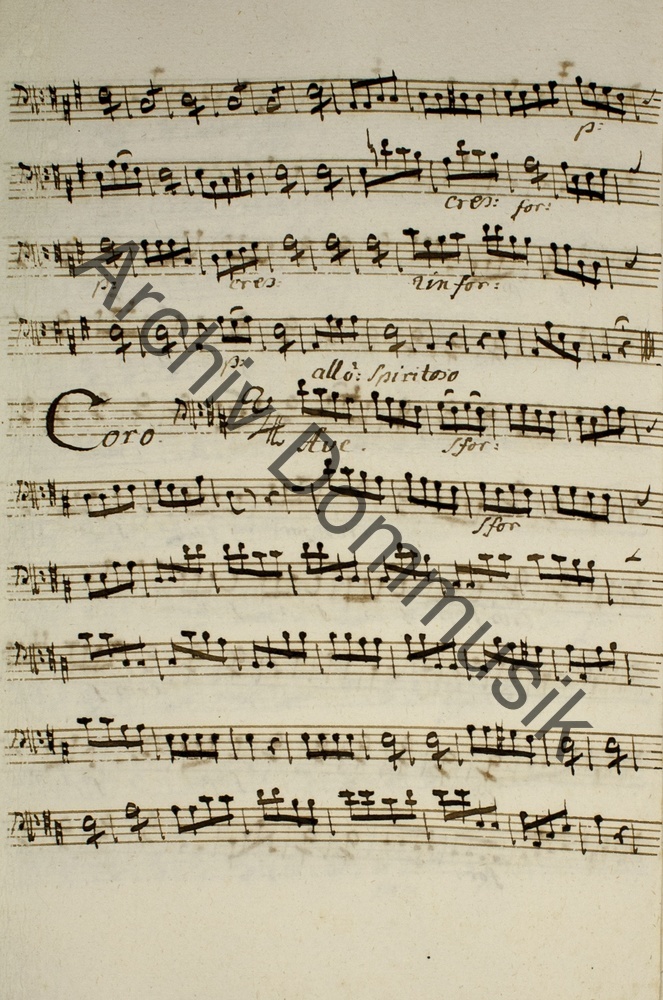 p:
cres: for:
p: cres: rinfor:
p:
allo: Spiritoso
Coro. Ave. sfor:
sfor
Archiv Dommusik